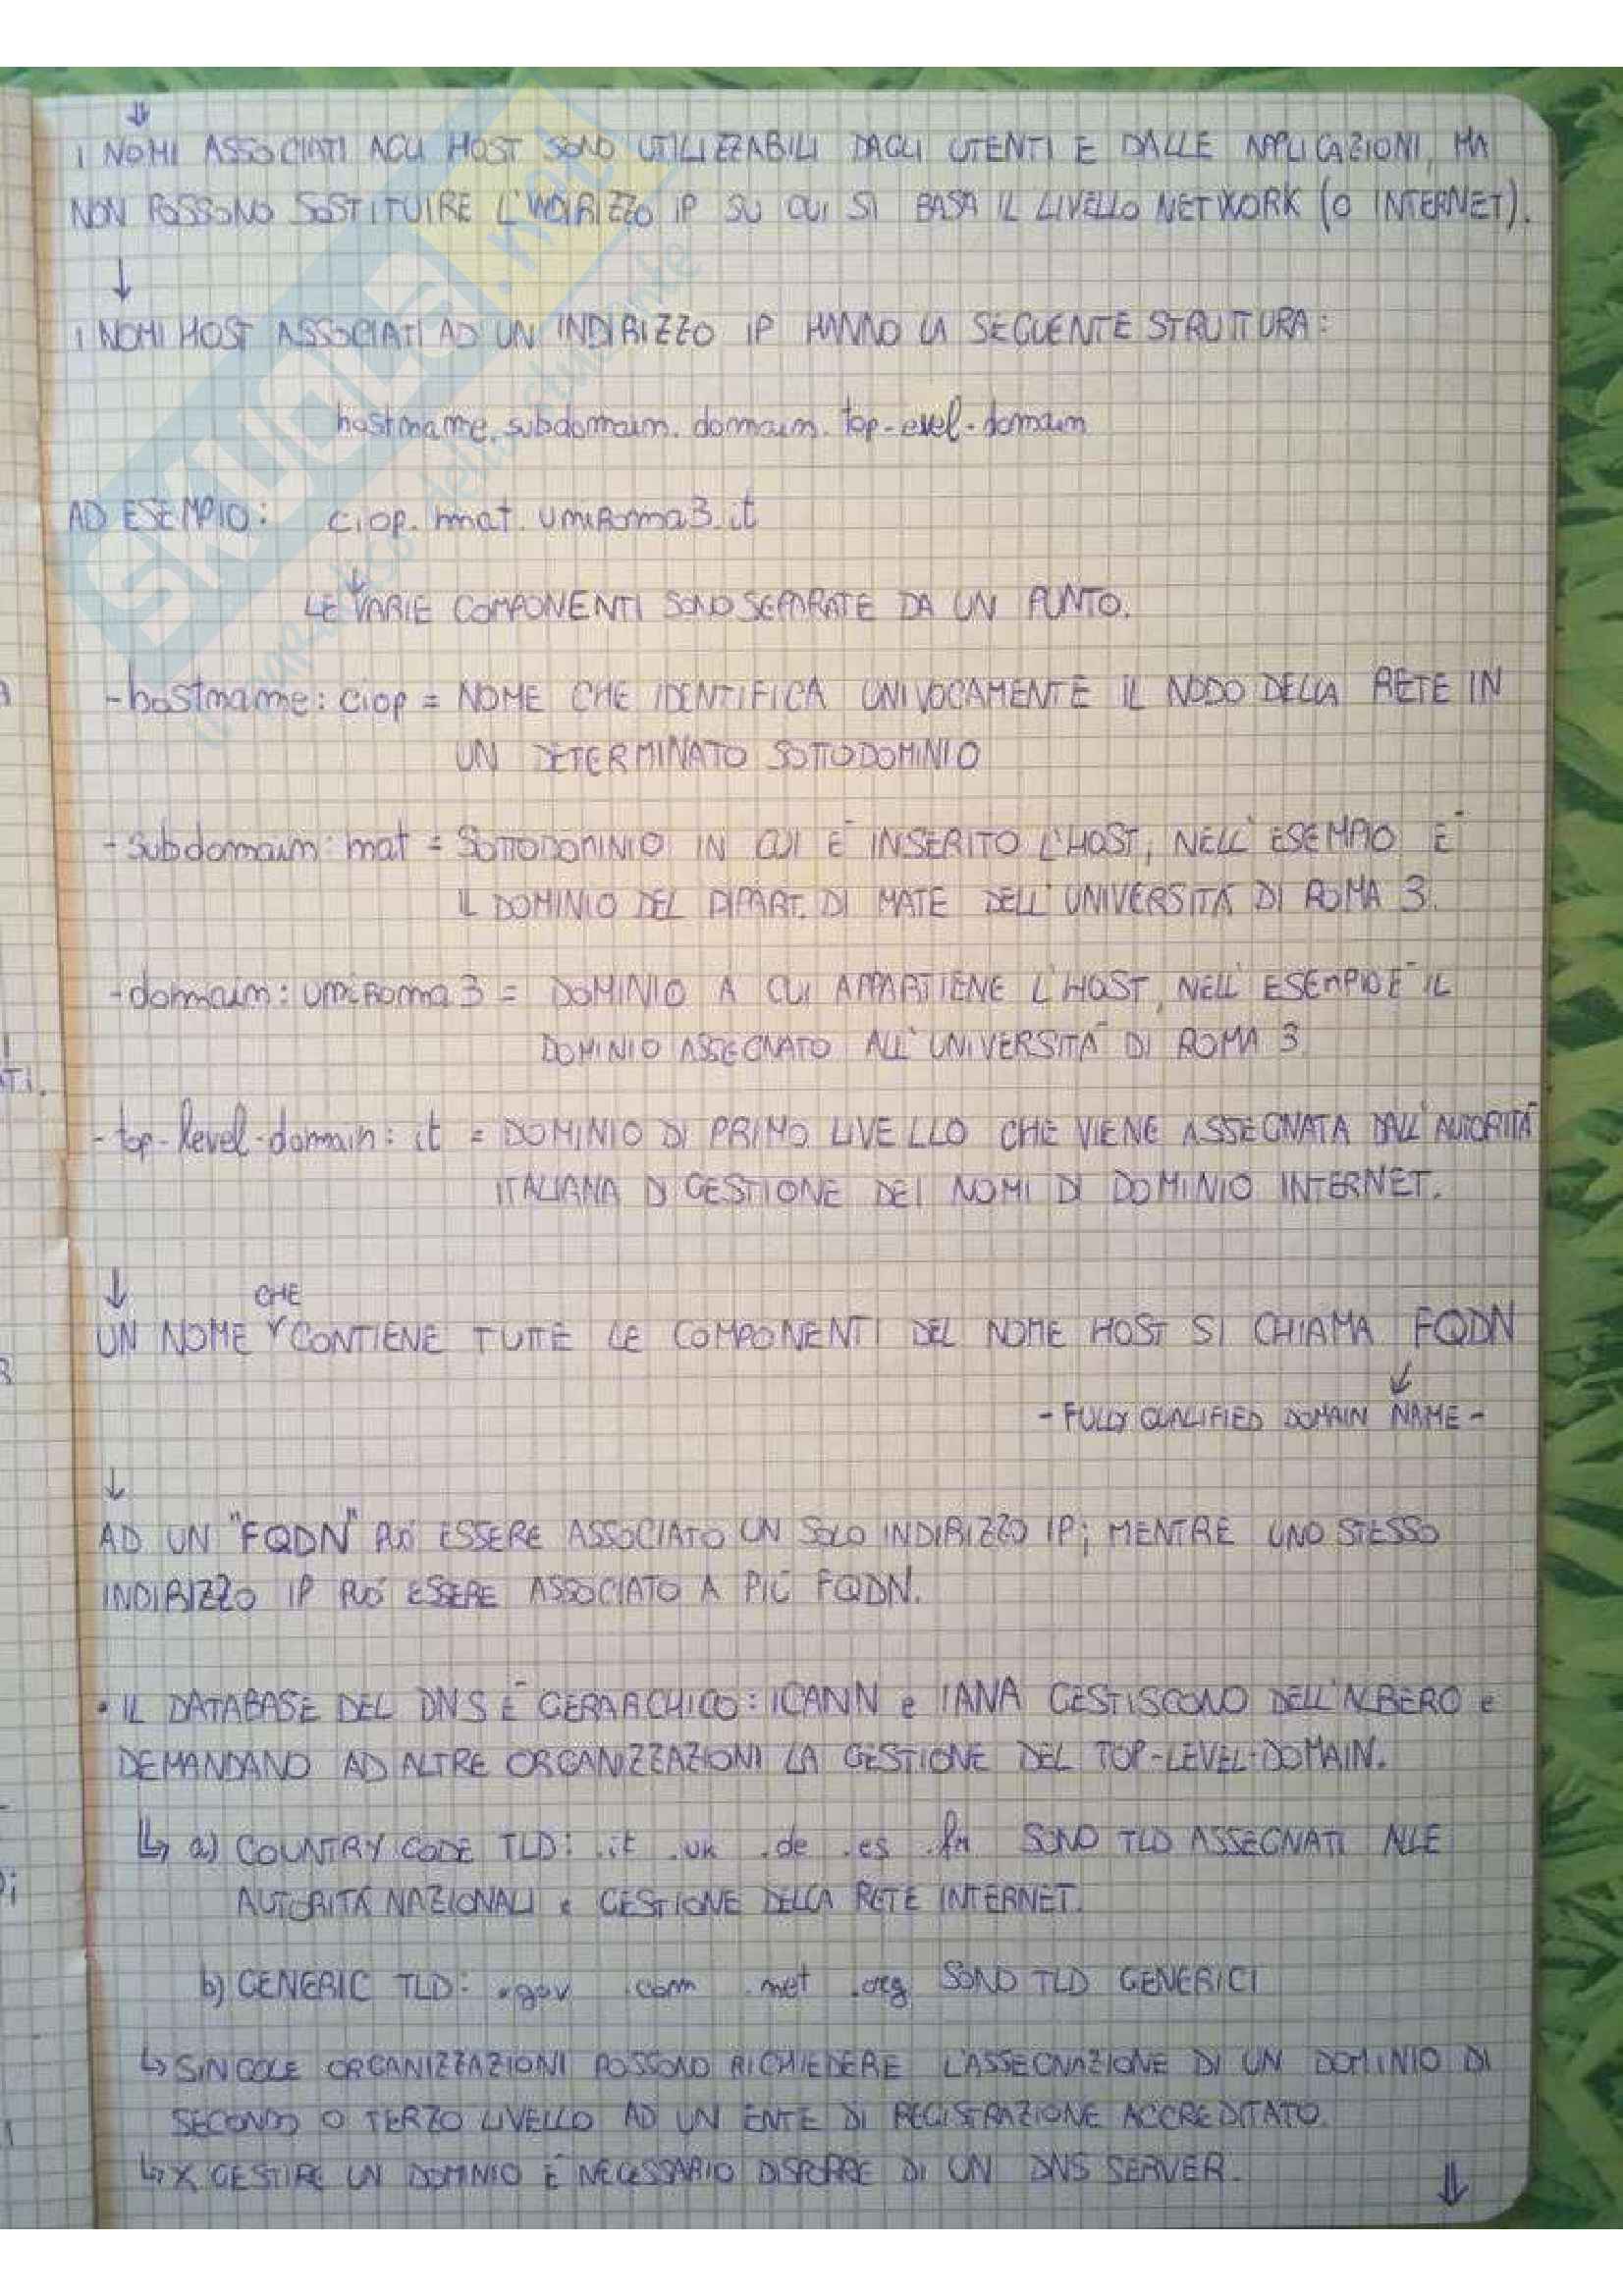 ⇓
I NOMI ASSOCIATI AGLI HOST SONO UTILIZZABILI DAGLI UTENTI E DALLE APPLICAZIONI, MA
NON POSSONO SOSTITUIRE L'INDIRIZZO IP SU CUI SI BASA IL LIVELLO NETWORK (O INTERNET).
↓
I NOMI HOST ASSOCIATI AD UN INDIRIZZO IP HANNO LA SEGUENTE STRUTTURA:
hostname. subdomain. domain. top-evel-domain
AD ESEMPIO: ciop. mat. uniRoma3.it
↓
LE VARIE COMPONENTI SONO SEPARATE DA UN PUNTO.
- hostname: ciop = NOME CHE IDENTIFICA UNIVOCAMENTE IL NODO DELLA RETE IN
UN DETERMINATO SOTTODOMINIO
- subdomain: mat = SOTTODOMINIO IN CUI È INSERITO L'HOST, NELL'ESEMPIO È
IL DOMINIO DEL DIPART. DI MATE DELL'UNIVERSITÀ DI ROMA 3.
- domain: uniRoma3 = DOMINIO A CUI APPARTIENE L'HOST, NELL'ESEMPIO È IL
DOMINIO ASSEGNATO ALL'UNIVERSITÀ DI ROMA 3.
- top-level-domain: it = DOMINIO DI PRIMO LIVELLO CHE VIENE ASSEGNATA DALL'AUTORITÀ
ITALIANA DI GESTIONE DEI NOMI DI DOMINIO INTERNET.
↓
UN NOME CHE CONTIENE TUTTE LE COMPONENTI DEL NOME HOST SI CHIAMA FQDN
↓
- FULLY QUALIFIED DOMAIN NAME -
↓
AD UN "FQDN" PUÒ ESSERE ASSOCIATO UN SOLO INDIRIZZO IP; MENTRE UNO STESSO
INDIRIZZO IP PUÒ ESSERE ASSOCIATO A PIÙ FQDN.
• IL DATABASE DEL DNS È GERARCHICO: ICANN e IANA GESTISCONO DELL'ALBERO e
DEMANDANO AD ALTRE ORGANIZZAZIONI LA GESTIONE DEL TOP-LEVEL-DOMAIN.
↳ a) COUNTRY CODE TLD: .it .uk .de .es .fr SONO TLD ASSEGNATI ALLE
AUTORITÀ NAZIONALI GESTIONE DELLA RETE INTERNET.
b) GENERIC TLD: .gov .com .net .org SONO TLD GENERICI
↳ SINGOLE ORGANIZZAZIONI POSSONO RICHIEDERE L'ASSEGNAZIONE DI UN DOMINIO DI
SECONDO O TERZO LIVELLO AD UN ENTE DI REGISTRAZIONE ACCREDITATO.
↳ X GESTIRE UN DOMINIO È NECESSARIO DISPORRE DI UN DNS SERVER.
⇓
SKUOLA.net